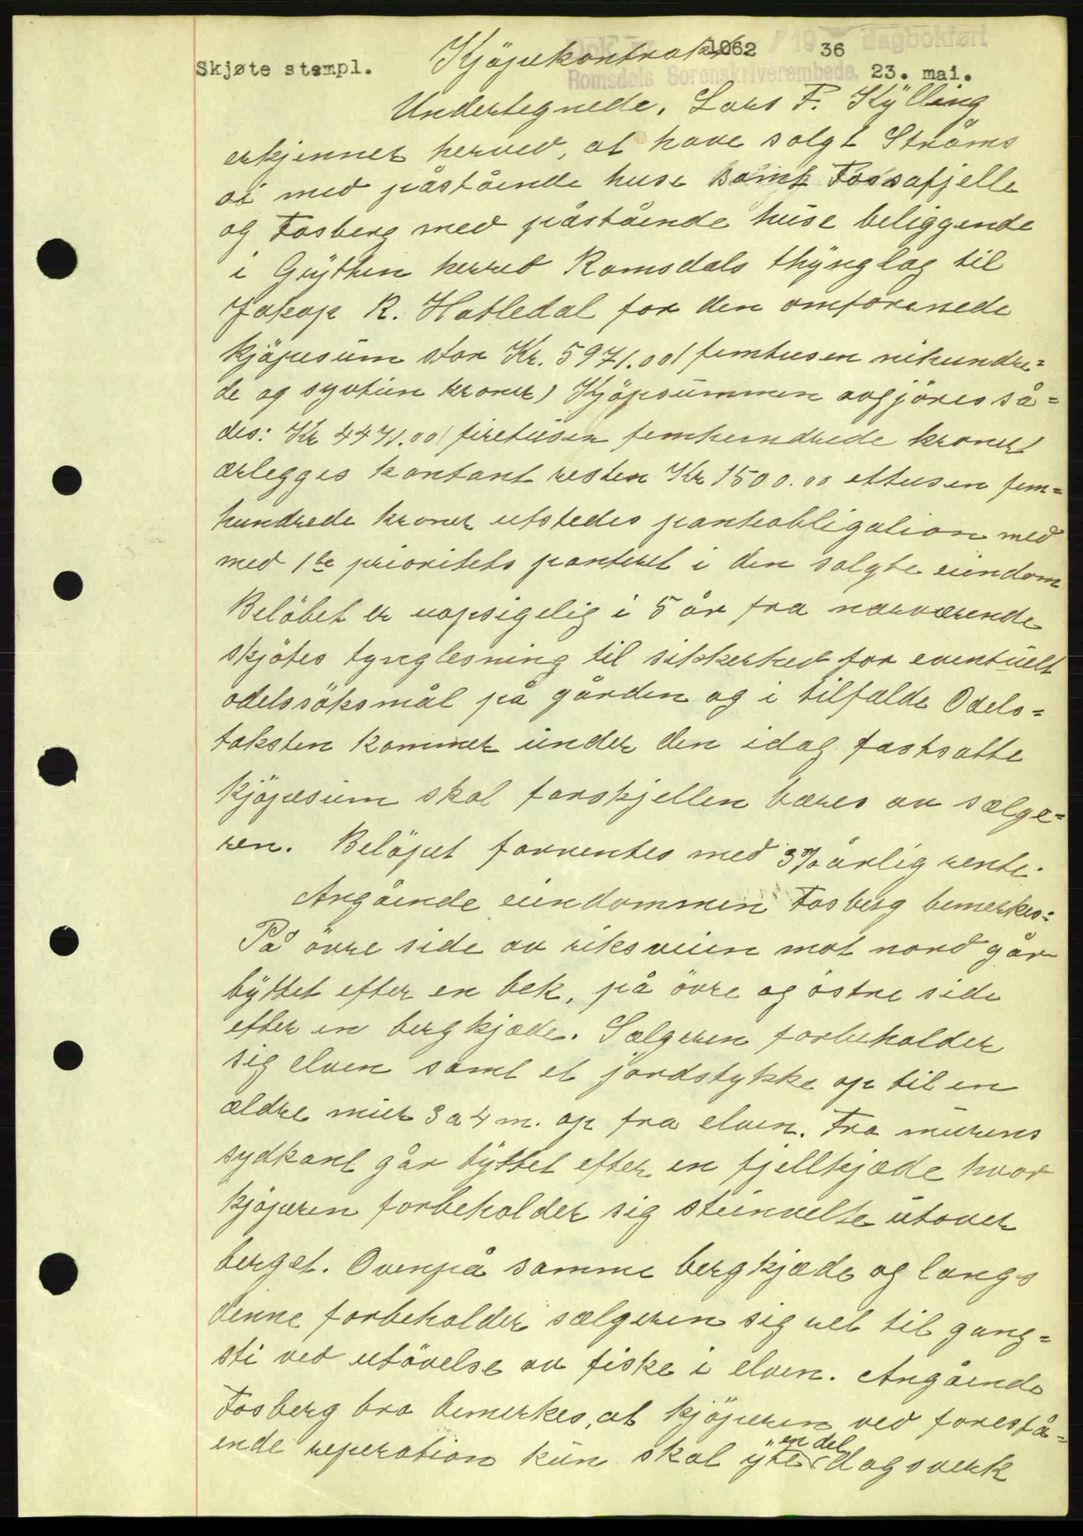 Dok. 1062 / 1936 dagbokført
Skjøte stempl. Romsdals Sorenskriverembede, 23. mai.
Kjöpekontrakt.
Undertegnede, Lars P. Kÿlling
erkjenner herved, at have solgt Ströms
øi med påstående huse samt Fossafjelle
og Fosberg med påstående huse beliggende
i Grÿtten herred Romsdals thÿnglag til
Jakop R. Hatledal for den omforenede
kjöpesum stor Kr. 5971.00 (femtusen nihundre=
de og syvtiin kroner) Kjöpsummen avgjöres så=
des: Kr 4471.00 (firetusen femhundrede kroner)
ærlegges kontant resten Kr 1500.00 ettusen fem=
hundrede kroner utstedes panteobligation med
med 1ste prioritets panteret i den solgte eiendom
Belöbet er uopsigelig i 5 år fra nærværende
skjötes tynglesning til sikkerhet for eventuelt
odelssöksmål på gården og i tilfælde Odels=
taksten kommer under den idag fastsatte
kjöpesum skal forskjellen bæres av sælge=
ren. Belöpet forrentes med 3% årlig rente.
Angående eiendommen Fosberg bemerkes:
På övre side av riksveien mot nord går
bÿttet efter en bek, på övre og östre side
efter en bergkjæde. Sælgeren forbeholder
sig elven samt et jordstykke op til en
ældre mur 3 a 4 m. op fra elven. Fra murens
sydkant går bÿttet efter en fjellkjæde hvor
kjöperen forbeholder sig steinvelte utover
berget. Ovenpå samme bergkjæde og langs
denne forbeholder sælgeren sig ret til gang=
sti ved utövelse av fiske i elven. Angående
Fosberg bro bemerkes, at kjöperen ved forestå=
ende reperation kun skal ÿte en del dagsverk